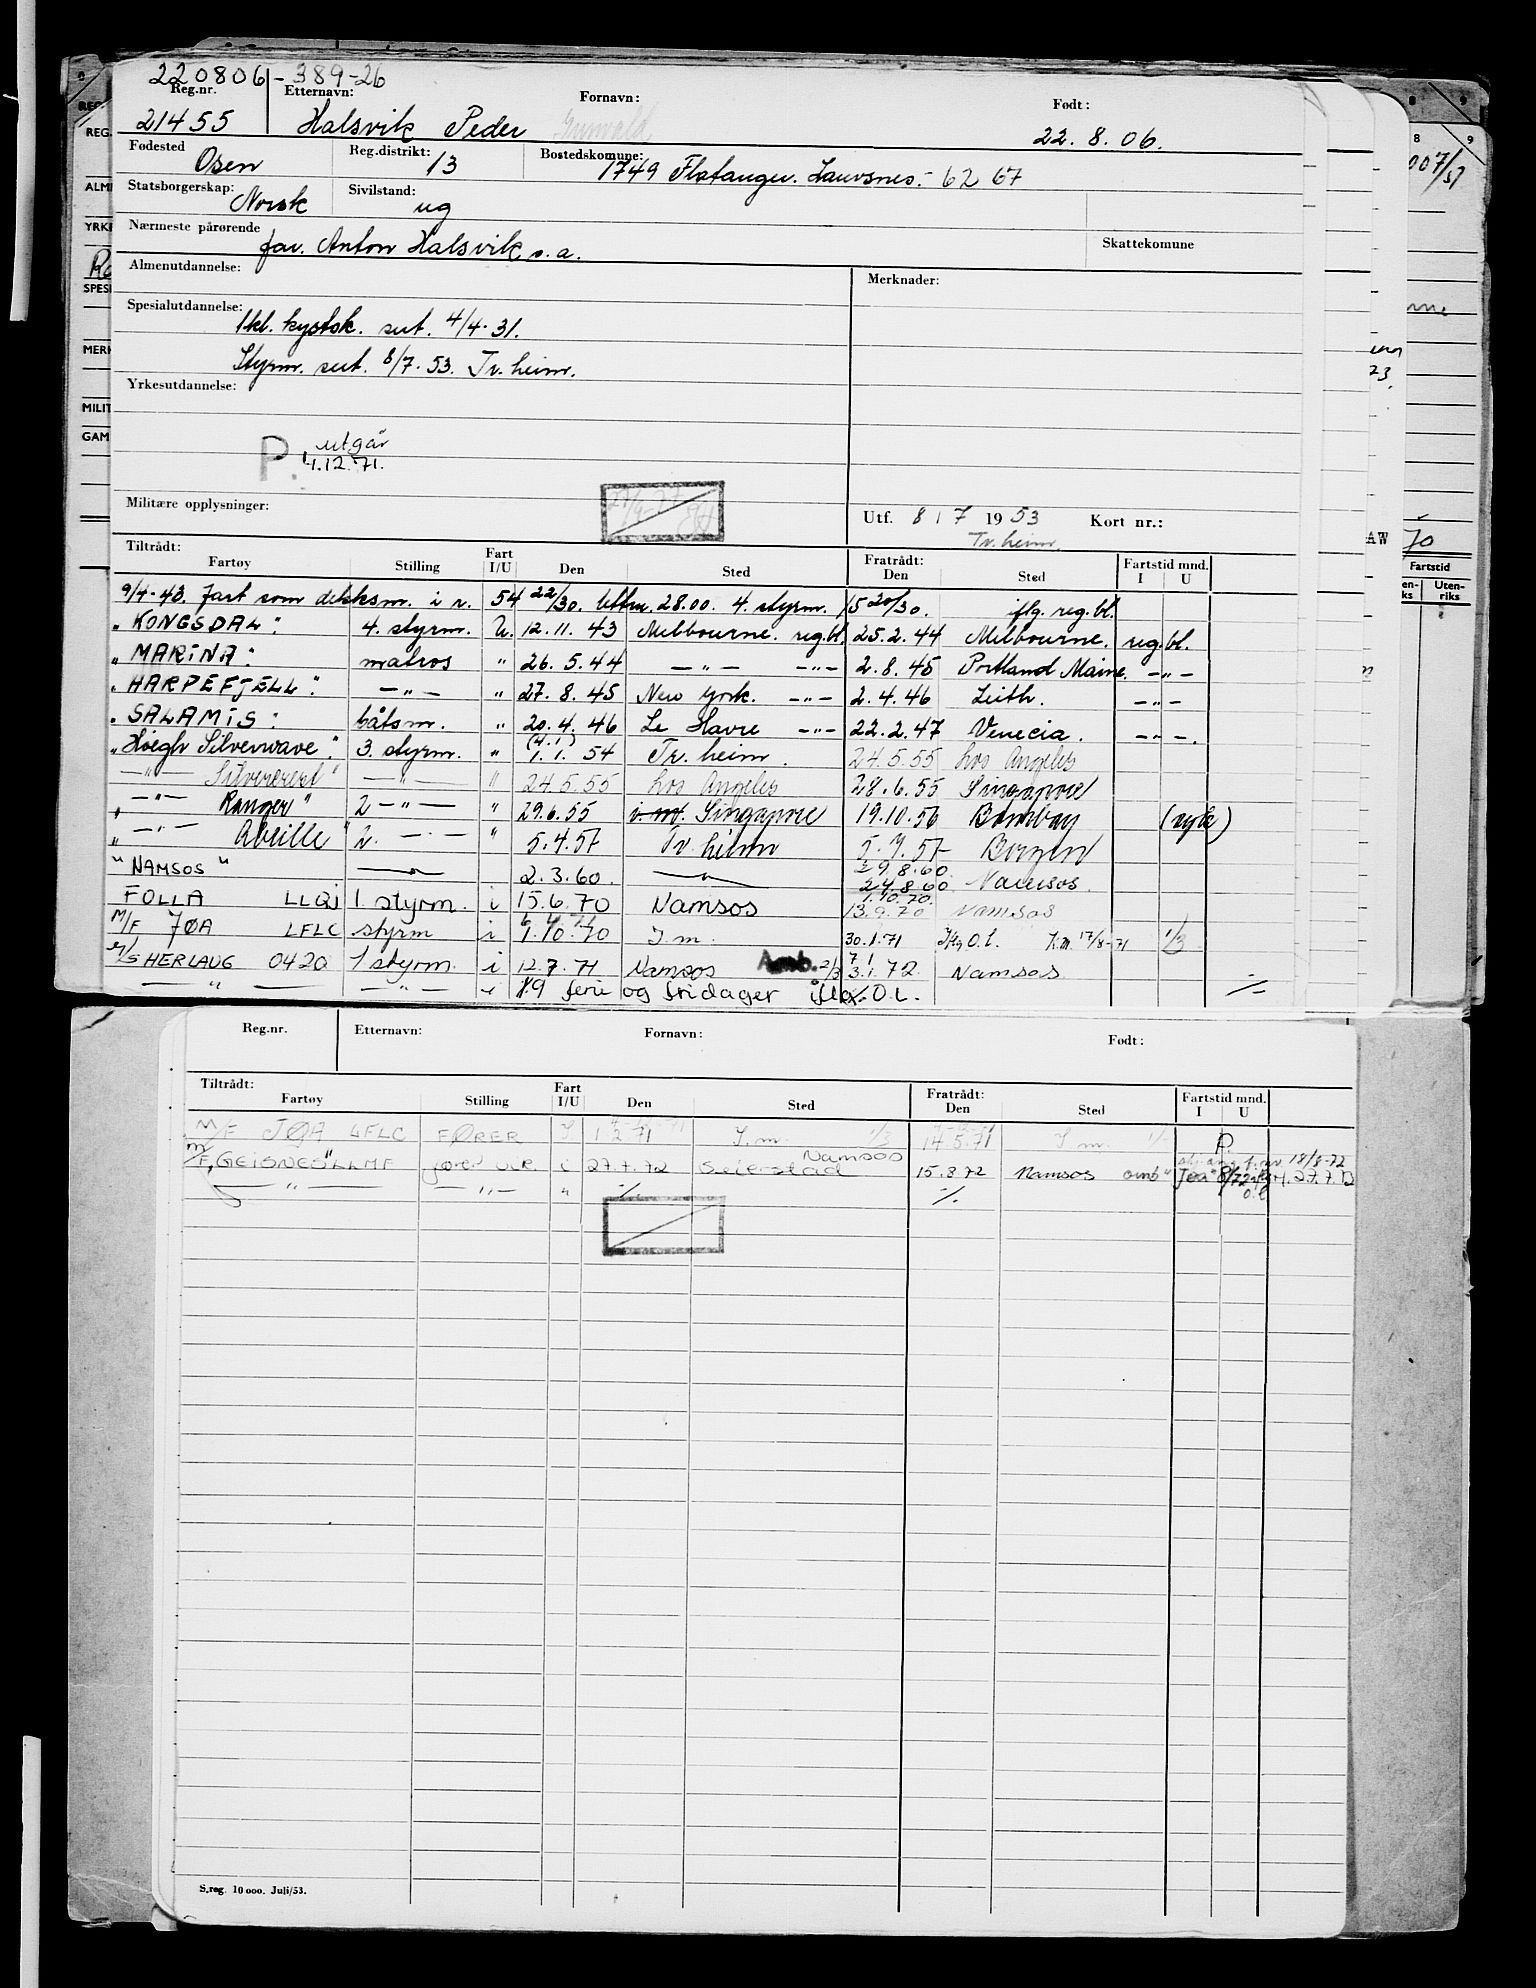 220806-389-26
Reg.nr. Etternavn: Fornavn: Født:
21455 Halsvik Peder Gunvald 22.8.06.
Fødested Osen Reg.distrikt: 13 Bostedskomune: 1749 Flatanger. Lauvsnes.- 62 67
Statsborgerskap: Norsk Sivilstand: ug
Nærmeste pårørende far. Anton Halsvik s.a. Skattekomune
Almenutdannelse: Merknader:
Spesialutdannelse: 1kl. kystsk. sert. 4/4-31.
Styrm. sert. 8/7.53. Tr.heim.
Yrkesutdannelse:
P. utgår
4.12.71.
Militære opplysninger: Utf. 8 / 7 1953 Kort nr.:
Tr.heim.
Tiltrådt: Fratrådt: Fartstid mnd.
Fartøy Stilling Fart I/U Den Sted Den Sted I U
9/4-43. Fart som dekksm. i r. 54 22/30. 28.00. 4. styrm. 15 20/30. iflg. reg.bl.
"KONGSDAL": 4. styrm. U. 12.11.43 Melbourne. reg.bl. 25.2.44 Melbourne. reg.bl.
"MARINA": matros " 26.5.44 —"— —"— 2.8.45 Portland Maine. —"—
"HARPEFJELL": —"— " 27.8.45 New York. —"— 2.4.46 Leith. —"—
"SALAMIS": båtsm. " 20.4.46 Le Havre —"— 22.2.47 Venecia. —"—.
"Höegh Silverwave": 3. styrm. " (4.1) 1.1.54 Tr.heim. 24.5.55 Los Angeles
—"— Silvercrest" —"— " 24.5.55 Los Angeles 28.6.55 Singapore
"—"— Ranger" 2 —"— " 29.6.55 Singapore 19.10.56 Bombay (syk)
"—"— Abeille" 2. —"— " 5.4.57 Tr.heim 5.7.57 Bergen
"NAMSOS" 2.3.60. 29.8.60
24.8.60 Namsos.
FOLLA LLQJ 1. styrm. i 15.6.70 Namsos 1.10.70.
13.9.70 Namsos
M/F JØA LFLC styrm i 1.10.70 I.m. 30.1.71 Iflg O.l. K.m. 17/8-71 1/3
M/S HERLAUG 0420 1 styrm. i 12.7.71 Namsos Amb. 2/3 7 1
3.1.72 Namsos
—"— —"— i 1.9 ferie og fridager iflg. O.l. ./.
Reg.nr. Etternavn: Fornavn: Født:
Tiltrådt: Fratrådt: Fartstid mnd.
Fartøy Stilling Fart I/U Den Sted Den Sted I U
M/F JØA LFLC FØRER I 1.2.71 I.m. 1/3 14.5.71 I m. P.
M/F, GEISNES" LLMF fører i 27.7.72 Namsos
Seierstad 15.8.72 Namsos omb" Joa" 18/8-72
—"— —"— " ./. ./. O.l
S.reg. 10 000. Juli/53.